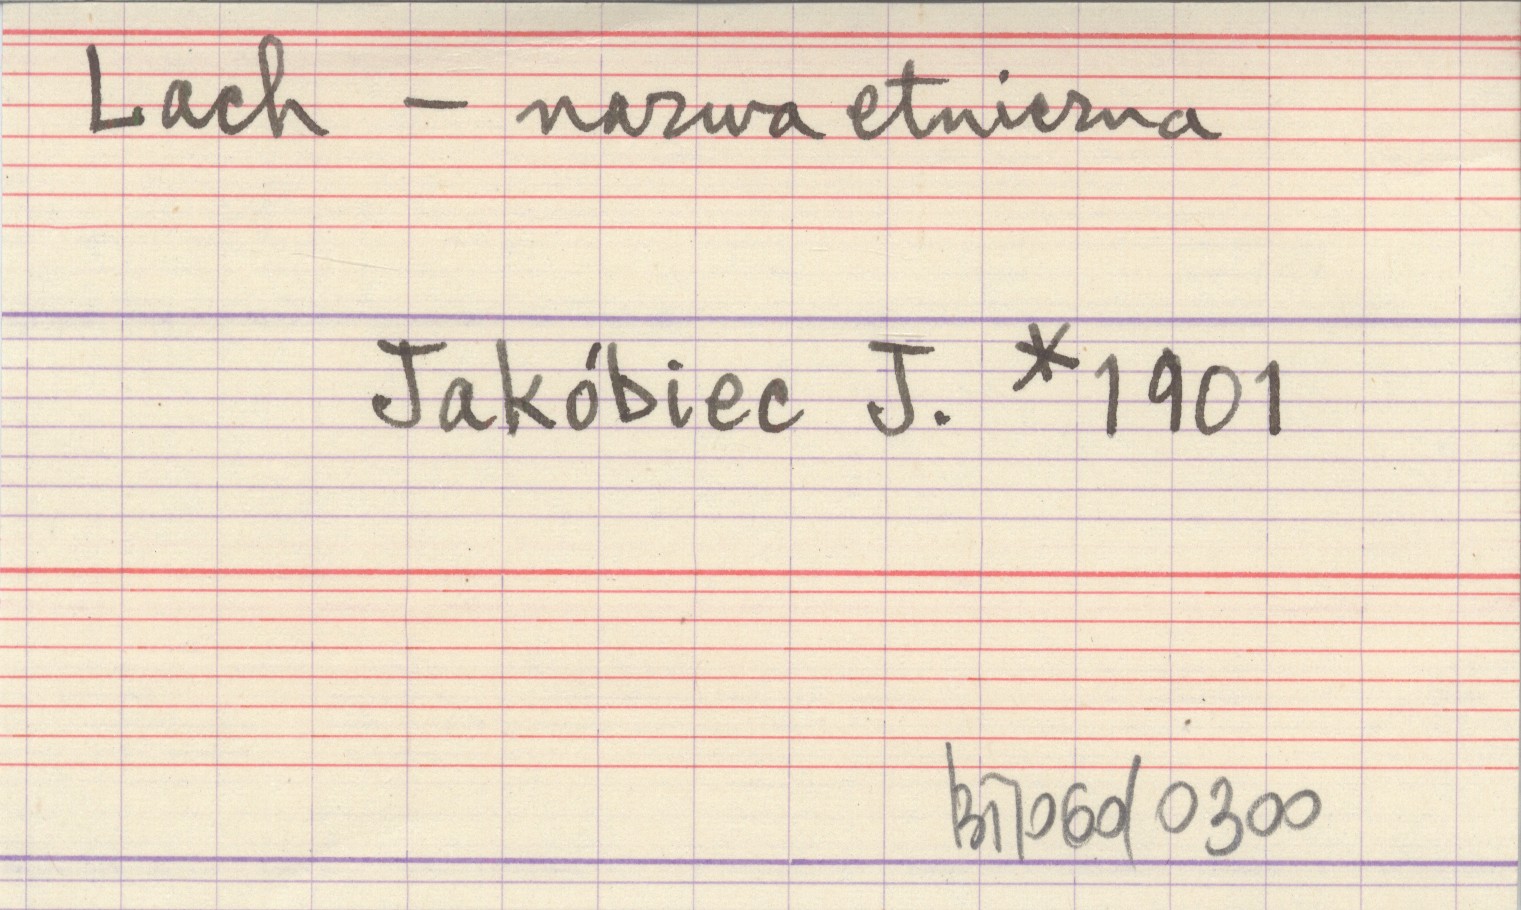 Lach – nazwa etniczna
Jakóbiec J. *1901
0300